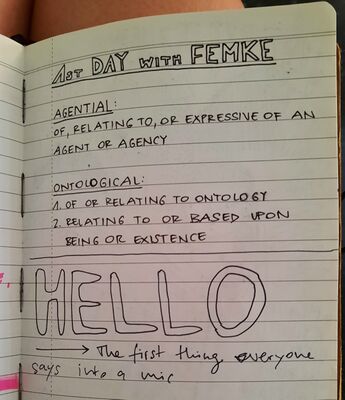 1st DAY WITH FEMKE
AGENTIAL:
OF, RELATING TO, OR EXPRESSIVE OF AN
AGENT OR AGENCY
ONTOLOGICAL:
1. OF OR RELATING TO ONTOLOGY
2. RELATING TO OR BASED UPON
BEING OR EXISTENCE
HELLO
→ The first thing everyone
says into a mic